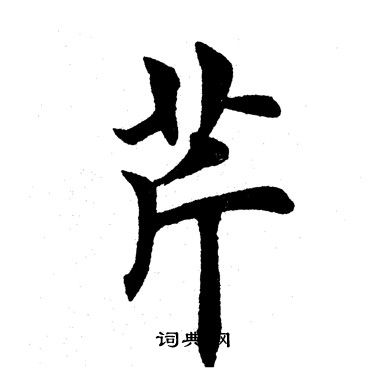 芹
词典网